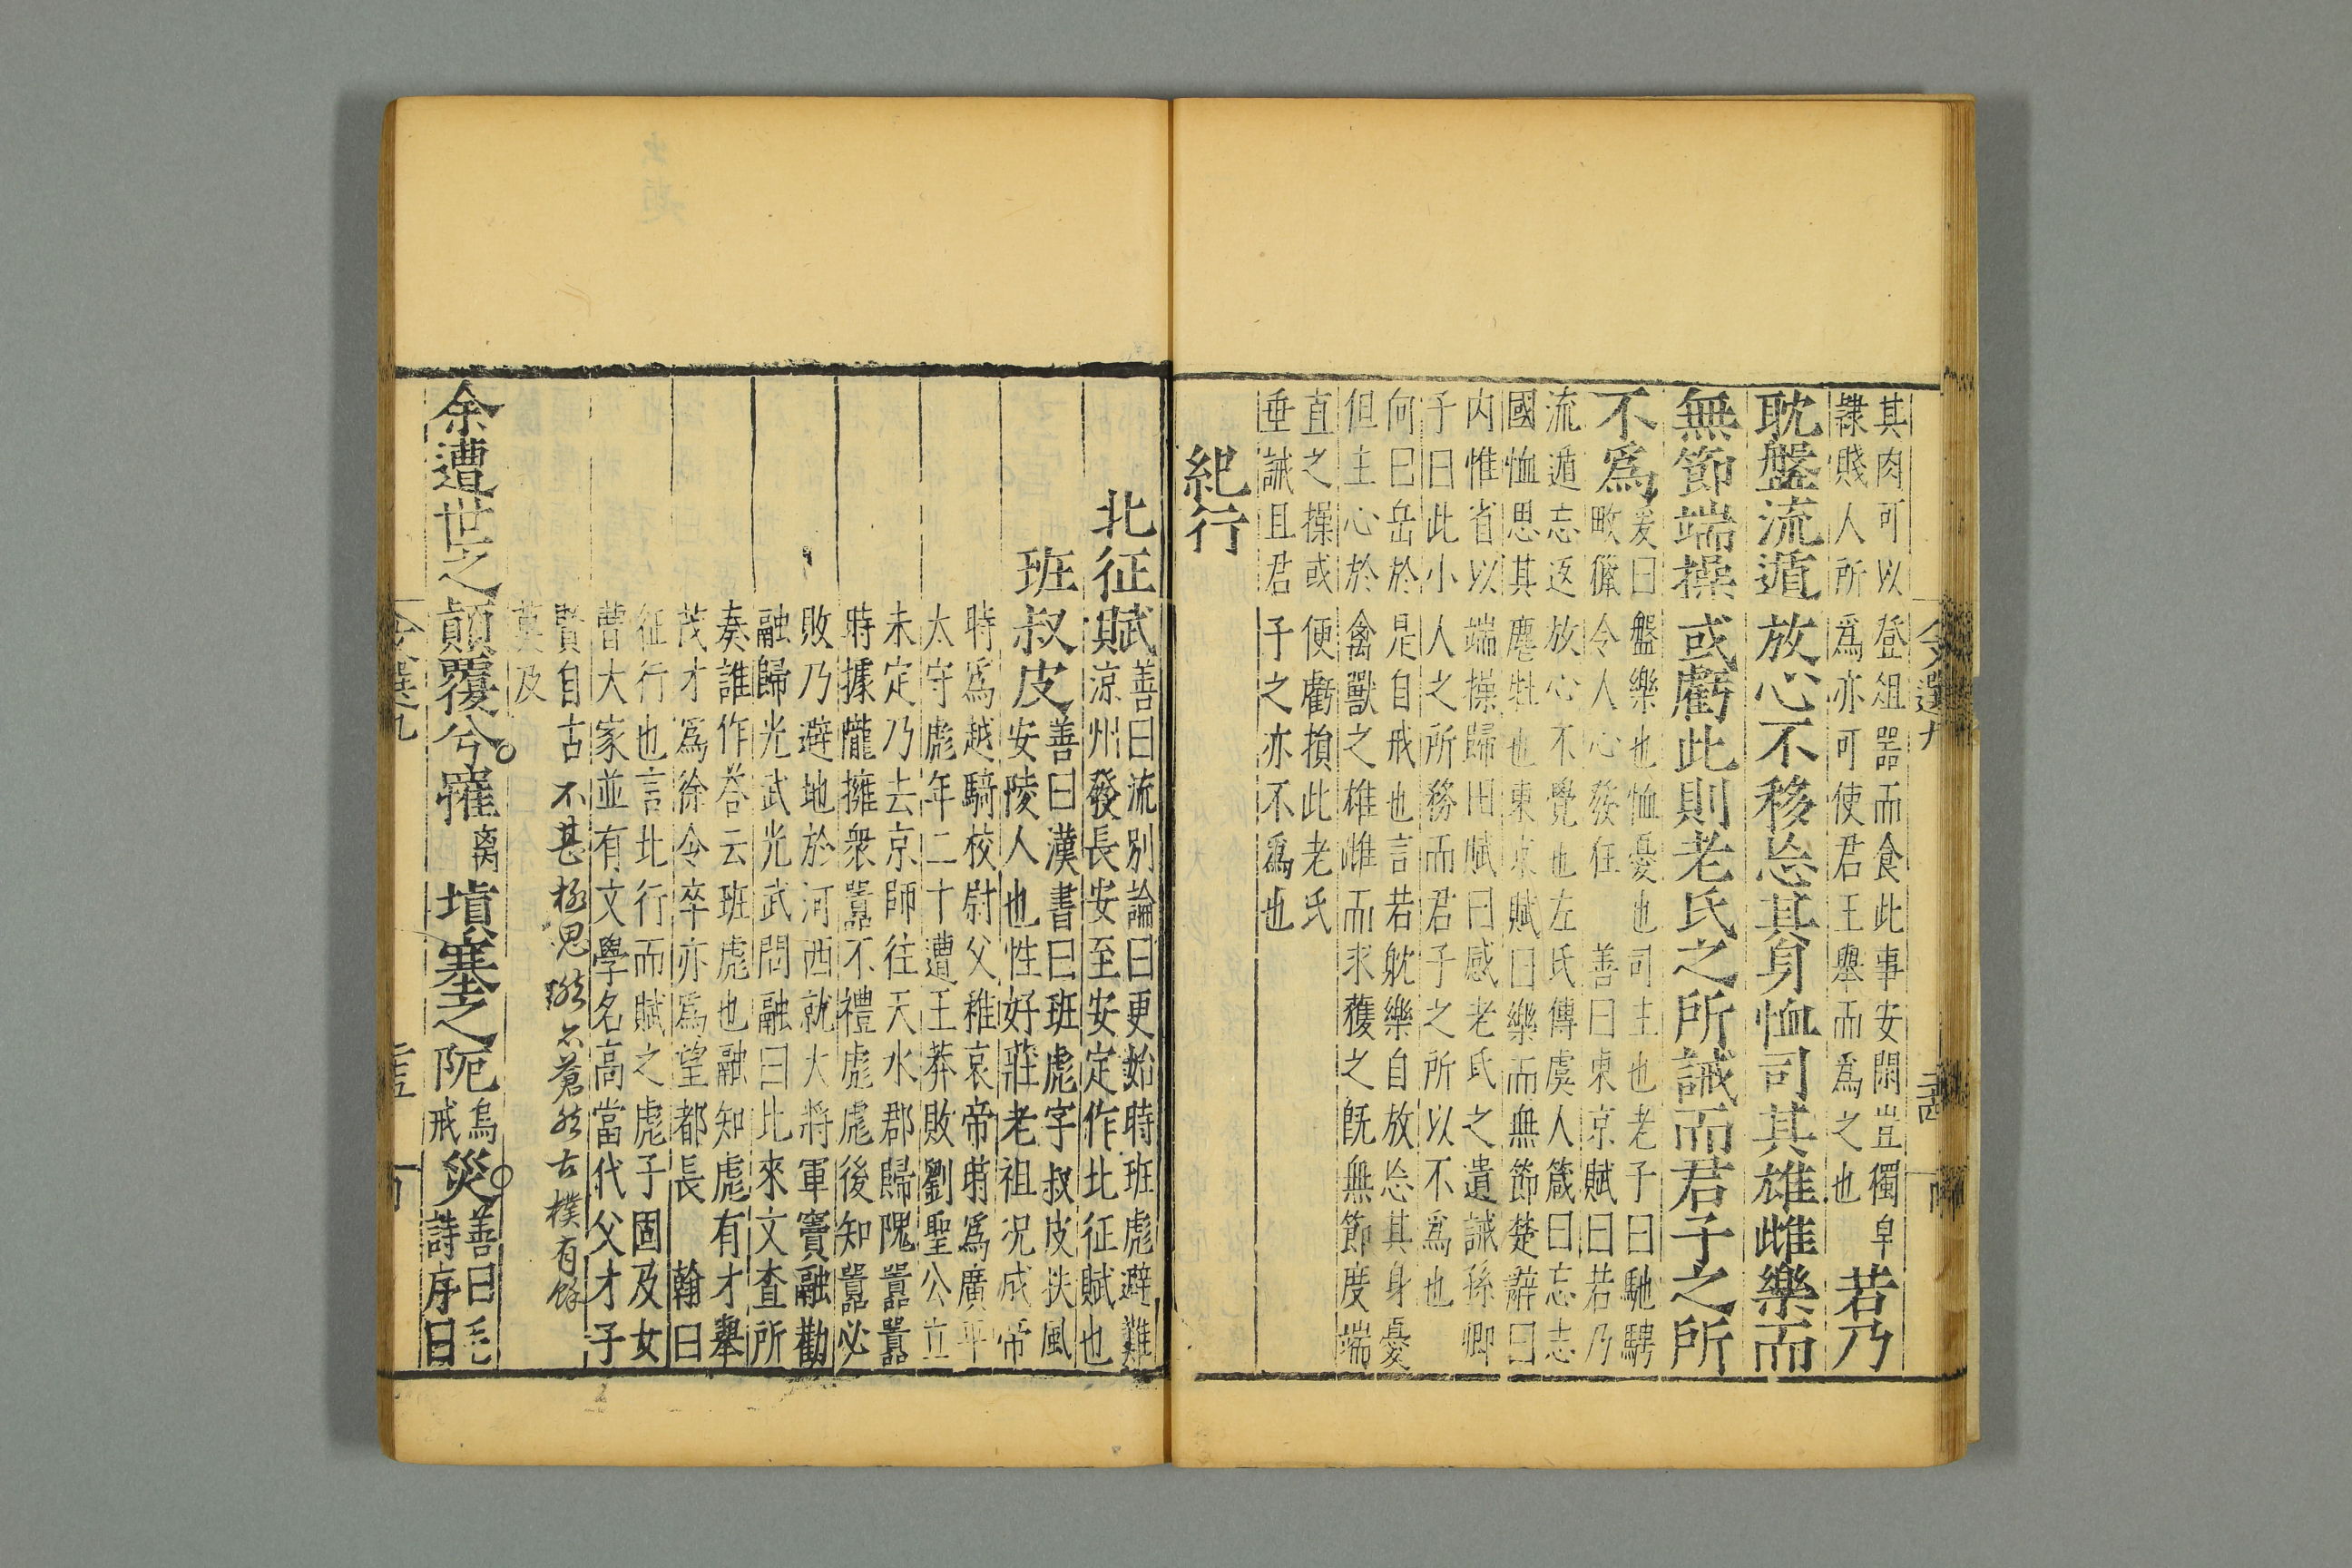 其肉可以登俎器而食此事安閑豈獨皁
隷賤人所爲亦可使君王舉而爲之也
若乃
耽盤流遁放心不移忘其身恤司其雄雌樂而
無節端操或虧此則老氏之所誡而君子之所
不爲
爰曰盤樂也恤憂也司主也老子曰馳騁
畋獵令人心發狂善曰東京賦曰若乃
流遁忘返放心不覺也左氏傳虞人箴曰忘志
國恤思其麀牡也東京賦曰樂而無節楚辭曰
内惟省以端操歸田賦曰感老氏之遺誡孫卿
子曰此小人之所務而君子之所以不爲也
向曰岳於是自戒也言若躭樂自放忘其身憂
但主心於禽獸之雄雌而求獲之旣無節度端
直之操或便虧損此老氏
垂誡且君子之亦不爲也
紀行
北征賦
善曰流別論曰更始時班彪避難
涼州發長安至安定作北征賦也
班叔皮
善曰漢書曰班彪字叔皮扶風
安陵人也性好莊老祖况成帝
時爲越騎校尉父稚哀帝時爲廣平
太守彪年二十遭王莽敗劉聖公立
未定乃去京師往天水郡歸隗囂囂
時據隴擁衆囂不禮彪彪後知囂必
敗乃避地於河西就大將軍竇融勸
融歸光武光武問融曰比來文查所
奏誰作荅云班彪也融知彪有才舉
茂才爲徐令卒亦爲望都長 翰曰
征行也言北行而賦之彪子固及女
曹大家並有文學名高當代父才子
賢自古
莫及
不甚極思然亦蒼然古樸有餘
余遭世之顛覆兮罹
离
塡塞之阨
烏
戒
災
善曰毛
詩序曰